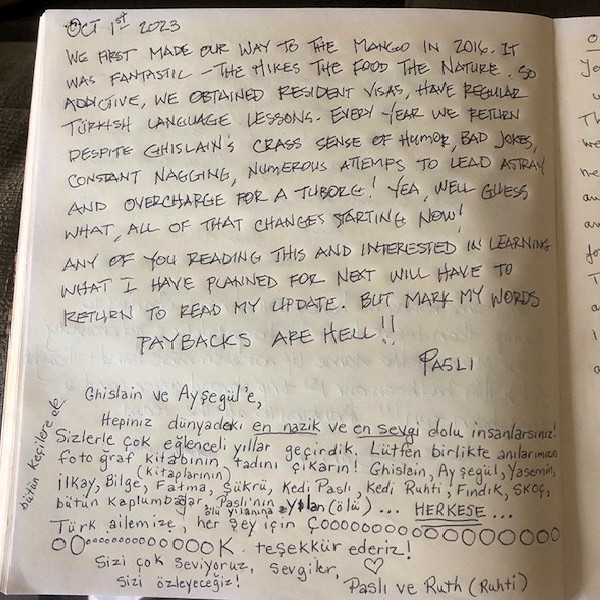 OCT 1st 2023
WE FIRST MADE OUR WAY TO THE MANGO IN 2016. IT
WAS FANTASTIC - THE HIKES THE FOOD THE NATURE. SO
ADDICTIVE, WE OBTAINED RESIDENT VISAS, HAVE REGULAR
TÜRKISH LANGUAGE LESSONS. EVERY YEAR WE RETURN
DESPITE GHISLAIN'S CRASS SENSE OF HUMOR, BAD JOKES,
CONSTANT NAGGING, NUMEROUS ATTEMPS TO LEAD ASTRAY
AND OVERCHARGE FOR A TUBORG! YEA, WELL GUESS
WHAT, ALL OF THAT CHANGES STARTING NOW!
ANY OF YOU READING THIS AND INTERESTED IN LEARNING
WHAT I HAVE PLANNED FOR NEXT WILL HAVE TO
RETURN TO READ MY UPDATE. BUT MARK MY WORDS
PAYBACKS ARE HELL!!
PASLI
Ghislain ve Ayşegül'e,
Hepiniz dünyadeki en nazik ve en sevgi dolu insanlarsınız!
Sizlerle çok eğlenceli yıllar geçirdik. Lütfen birlikte anılarımızın
fotoğraf kitabının tadını çıkarın! Ghislain, Ayşegül, Yasemin,
(kitaplarının)
İlkay, Bilge, Fatma, Şükrü, Kedi Paslı, Kedi Ruhti, Fındık, Şkoç,
bütün kaplumbağar, Paslı'nın yılan (ölü) ... HERKESE ...
ölü yılanına
Türk ailemize, her şey için Çooooooooooooooooooo
OOooooooooooooK teşekkür ederiz!
Sizi çok seviyoruz, sevgiler,
Sizi özleyeceğiz! Paslı ve Ruth (Ruhti)
bütün keçilere de